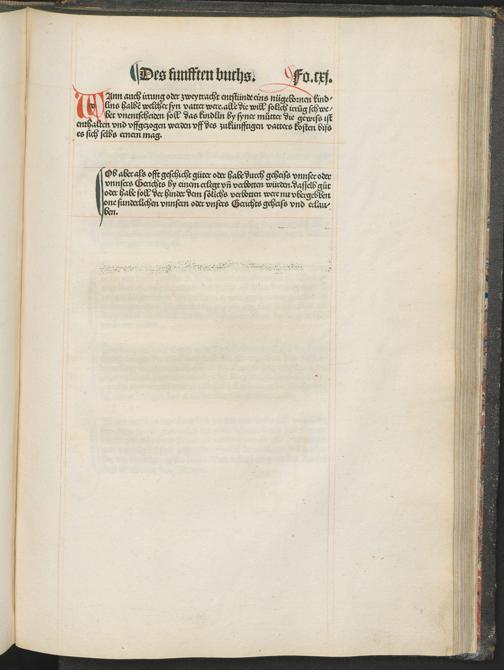 Des funfften buchs. Fo.cxj.
Wann auch irrung oder zweytracht entstünde eins nügebornen kind-
lins halbē welcher syn vatter were. alle die will solich irrūg schwe-
bet vnentscheden soll das kindlin by syner mütter die gewiss ist
enthalten vnd vffgezogen werden vff des zukünfftigen vatters kosten biss
es sich selbs ernern mag.
Ob aber als offt geschicht güter oder habe durch geheiss vnnser oder
vnnsers Gerichts by einem erlegt vn̄ verbotten würden. dasselb güt
oder habe soll der hinder dem solichs verbotten were nit vbergeben
one sunderlichen vnnsern oder vnsers Gerichts geheiss vnd erlau-
ben.